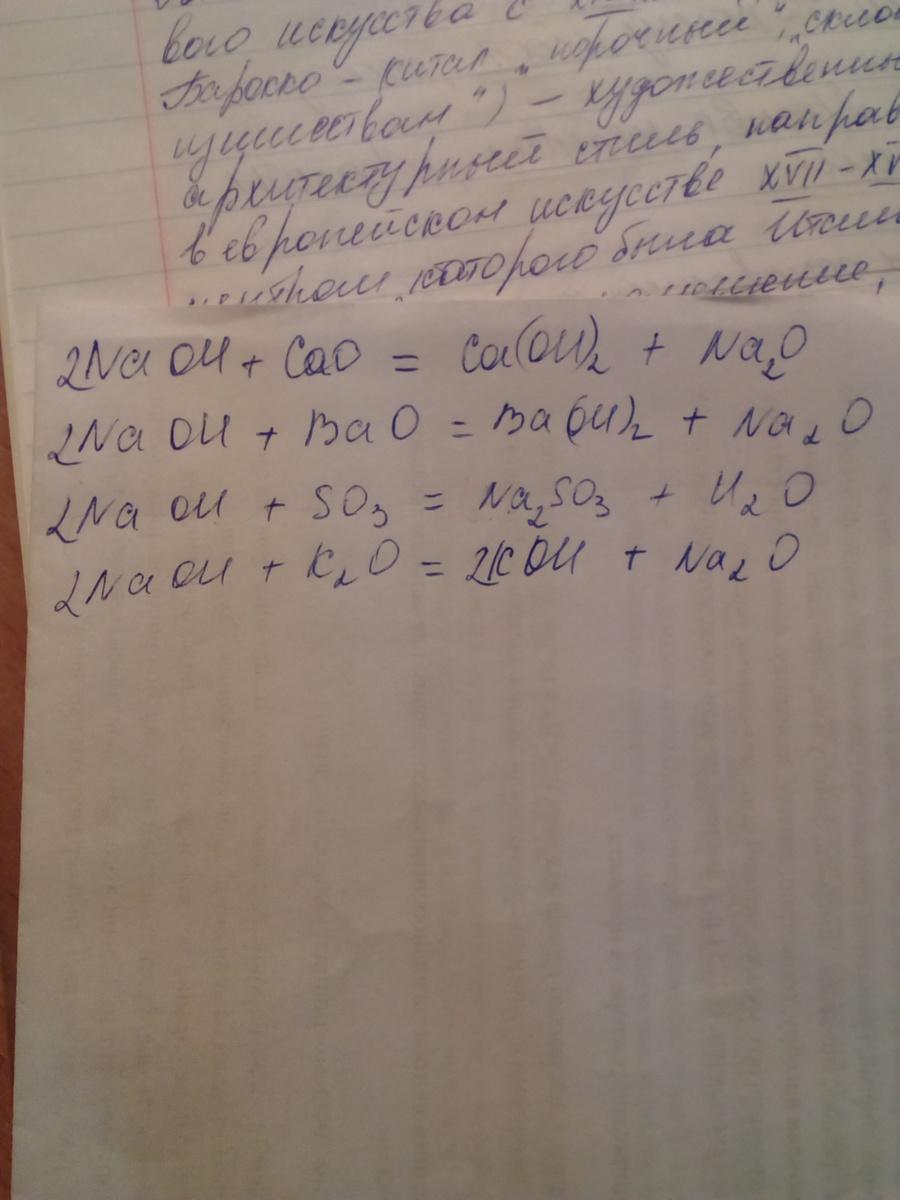 вого искусства с
Барокко - итал. "порочный", "скло
излишествам") - художественны
архитектурный стиль, направ
в европейском искусстве XVII - XV
центром которого была Итали
2NaOH + CaO = Ca(OH)₂ + Na₂O
2NaOH + BaO = Ba(OH)₂ + Na₂O
2NaOH + SO₃ = Na₂SO₃ + H₂O
2NaOH + K₂O = 2KOH + Na₂O